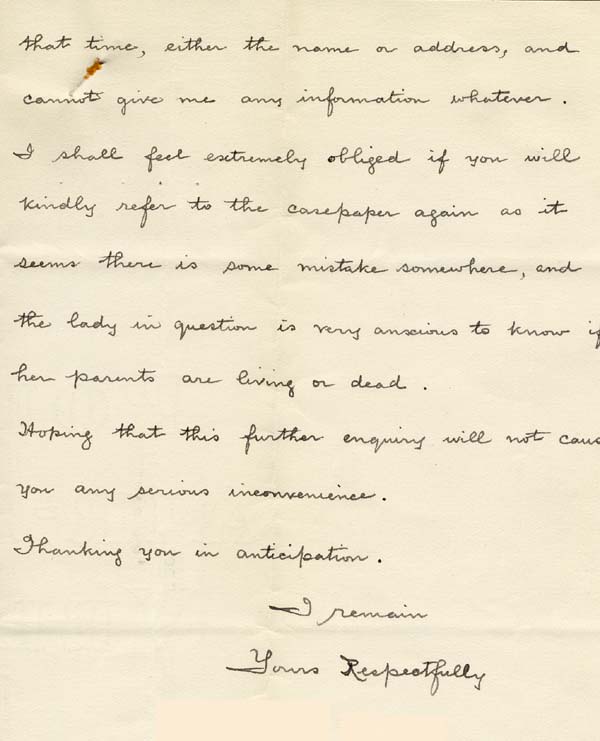 that time, either the name or address, and
cannot give me any information whatever.
I shall feel extremely obliged if you will
kindly refer to the casepaper again as it
seems there is some mistake somewhere, and
the lady in question is very anxious to know if
her parents are living or dead.
Hoping that this further enquiry will not caus
you any serious inconvenience.
Thanking you in anticipation.
I remain
Yours Respectfully